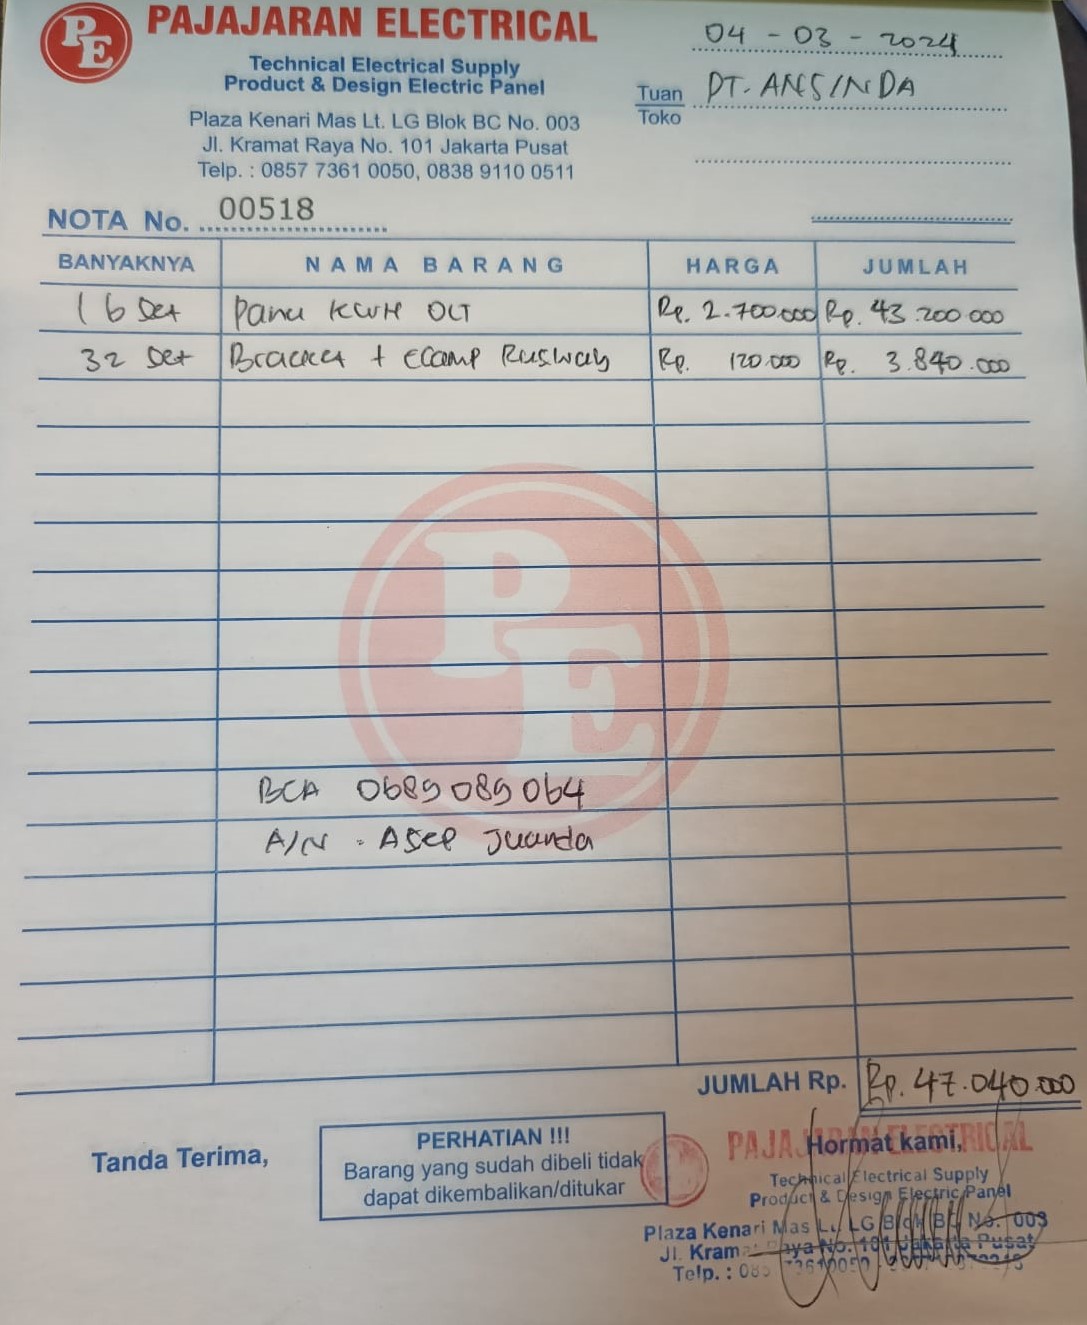 PE
PAJAJARAN ELECTRICAL
Technical Electrical Supply
Product & Design Electric Panel
Plaza Kenari Mas Lt. LG Blok BC No. 003
Jl. Kramat Raya No. 101 Jakarta Pusat
Telp. : 0857 7361 0050, 0838 9110 0511
04 - 03 - 2024
Tuan
Toko
PT. ANSINDA
NOTA No. 00518
BANYAKNYA NAMA BARANG HARGA JUMLAH
16 Set Panel KWH OLT Rp. 2.700.000 Rp. 43.200.000
32 Set Bracket + Clamp Rusway Rp. 120.000 Rp. 3.840.000
PE
BCA 0689089064
A/N . Asep Juanda
JUMLAH Rp. Rp. 47.040.000
Tanda Terima,
PERHATIAN !!!
Barang yang sudah dibeli tidak
dapat dikembalikan/ditukar
Hormat kami,
PAJAJARAN ELECTRICAL
Technical Electrical Supply
Product & Design Electric Panel
Plaza Kenari Mas Lt. LG Blok BC No. 003
Jl. Kramat Raya No. 101 Jakarta Pusat
Telp. :